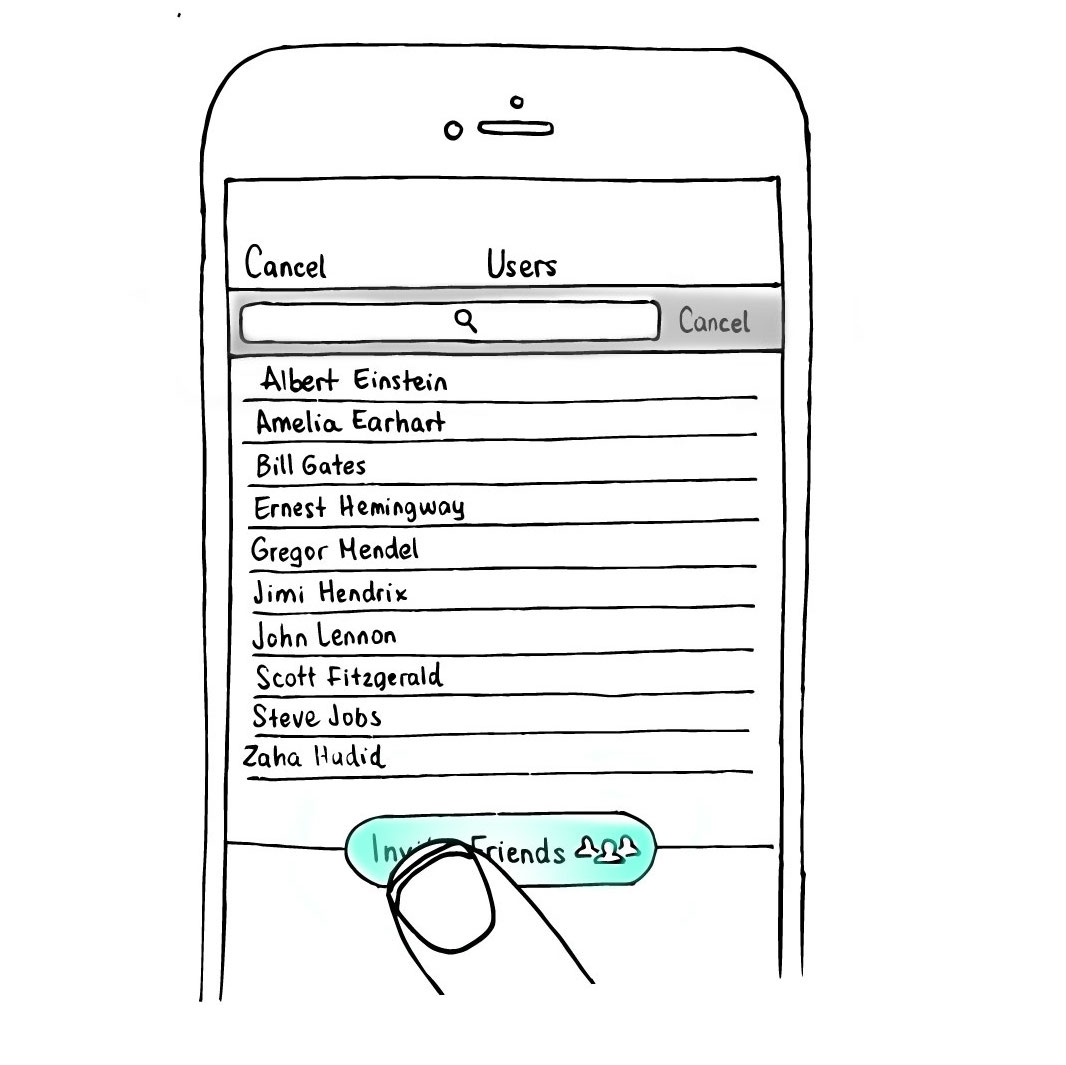 Cancel Users
Cancel
Albert Einstein
Amelia Earhart
Bill Gates
Ernest Hemingway
Gregor Mendel
Jimi Hendrix
John Lennon
Scott Fitzgerald
Steve Jobs
Zaha Hadid
Friends